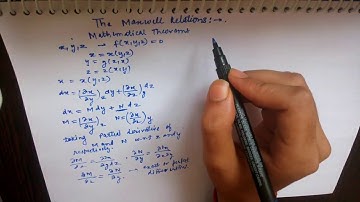 The Maxwell Relations:→.
Mathematical Theorams
x,y,z → f(x,y,z)=0
x = x(y,z)
y = y(z,x)
z = z(x,y)
x = x(y,z)
dx = [∂x/∂y]z dy + [∂x/∂z]y dz
dx = M dy + N dz
M = [∂x/∂y]z N = [∂x/∂z]y
taking Partial derivatives of
M and N w.r.t z and y
respectively.
∂M/∂z = ∂N/∂y → exact or perfect
differential